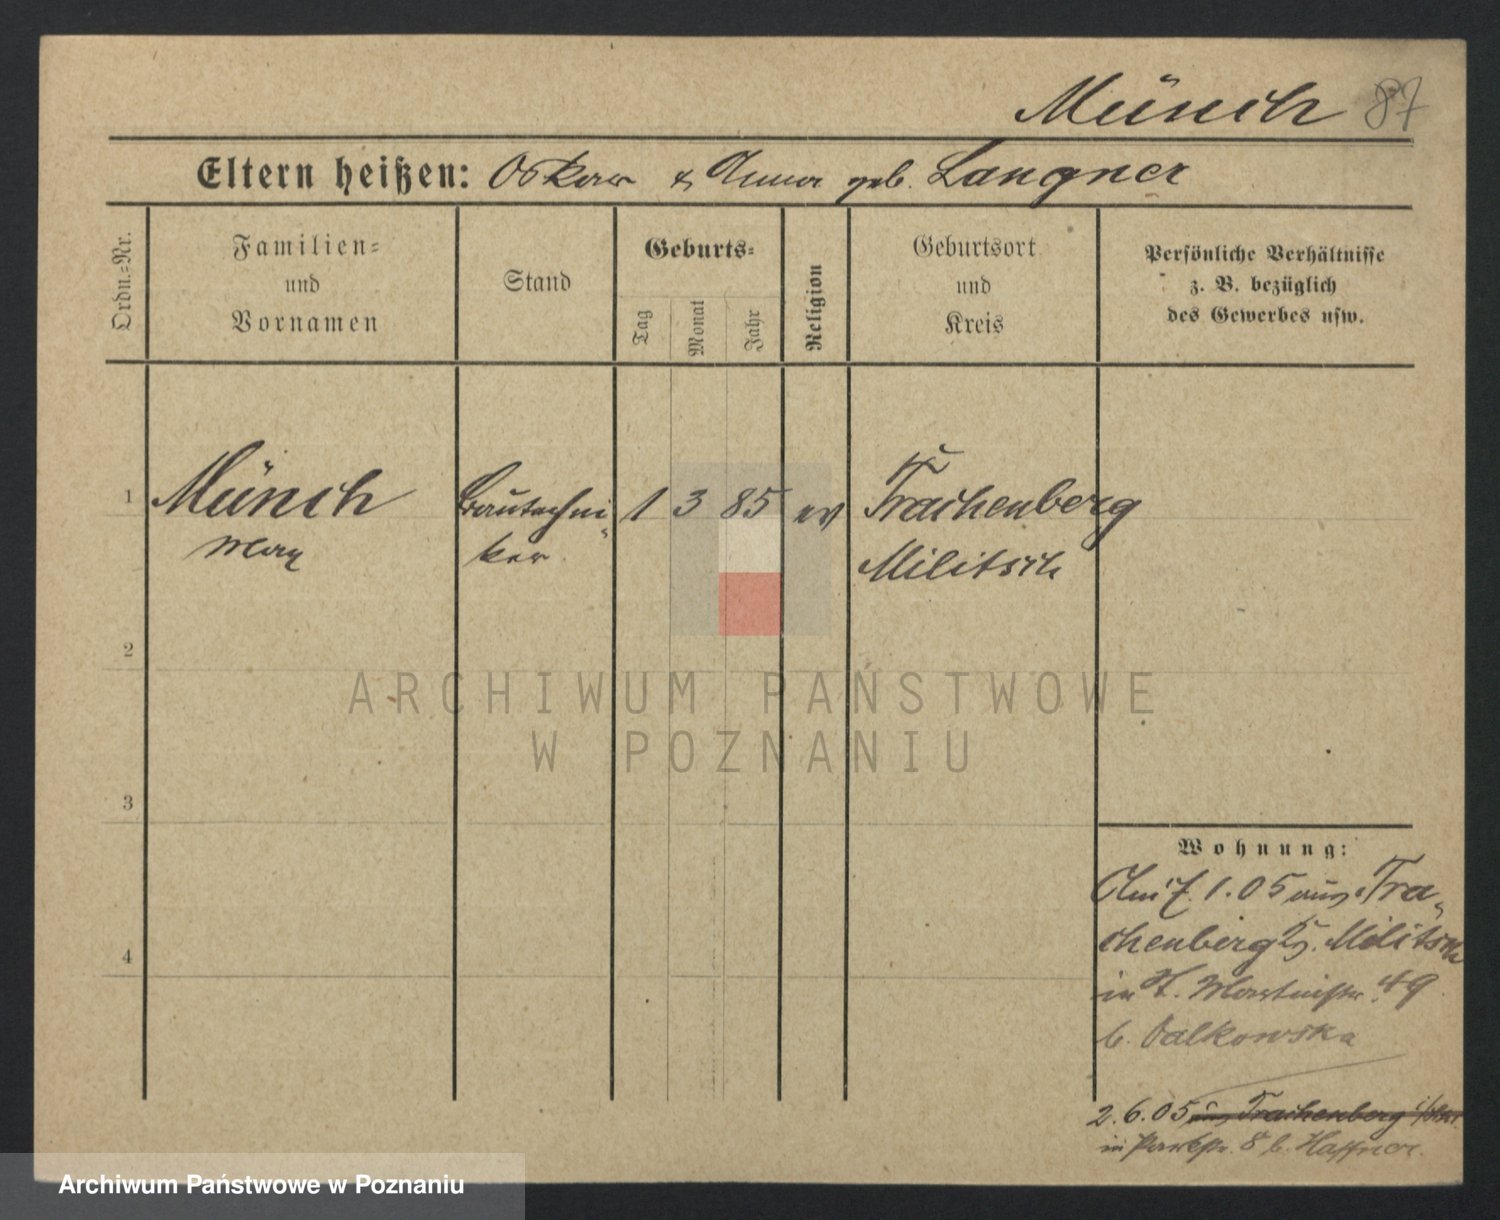 Münch 87
Eltern heißen: Oskar & Anna geb. Langner
Ordn.-Nr.
Familien-
und
Vornamen
Stand
Geburts-
Tag
Monat
Jahr
Religion
Geburtsort
und
Kreis
Persönliche Verhältnisse
z. B. bezüglich
des Gewerbes usw.
1 Münch Bautechni- 1 3 85 ev Trachenberg
Max ker Militsch
2
ARCHIWUM PAŃSTWOWE
W POZNANIU
3
Wohnung:
1.05 aus Tra-
chenberg Kr. Militsch
4
in Martinstr. 49
b. Valkowska
2.6.05 aus Trachenberg
in Parkstr. 8 b. Haffner.
Archiwum Państwowe w Poznaniu